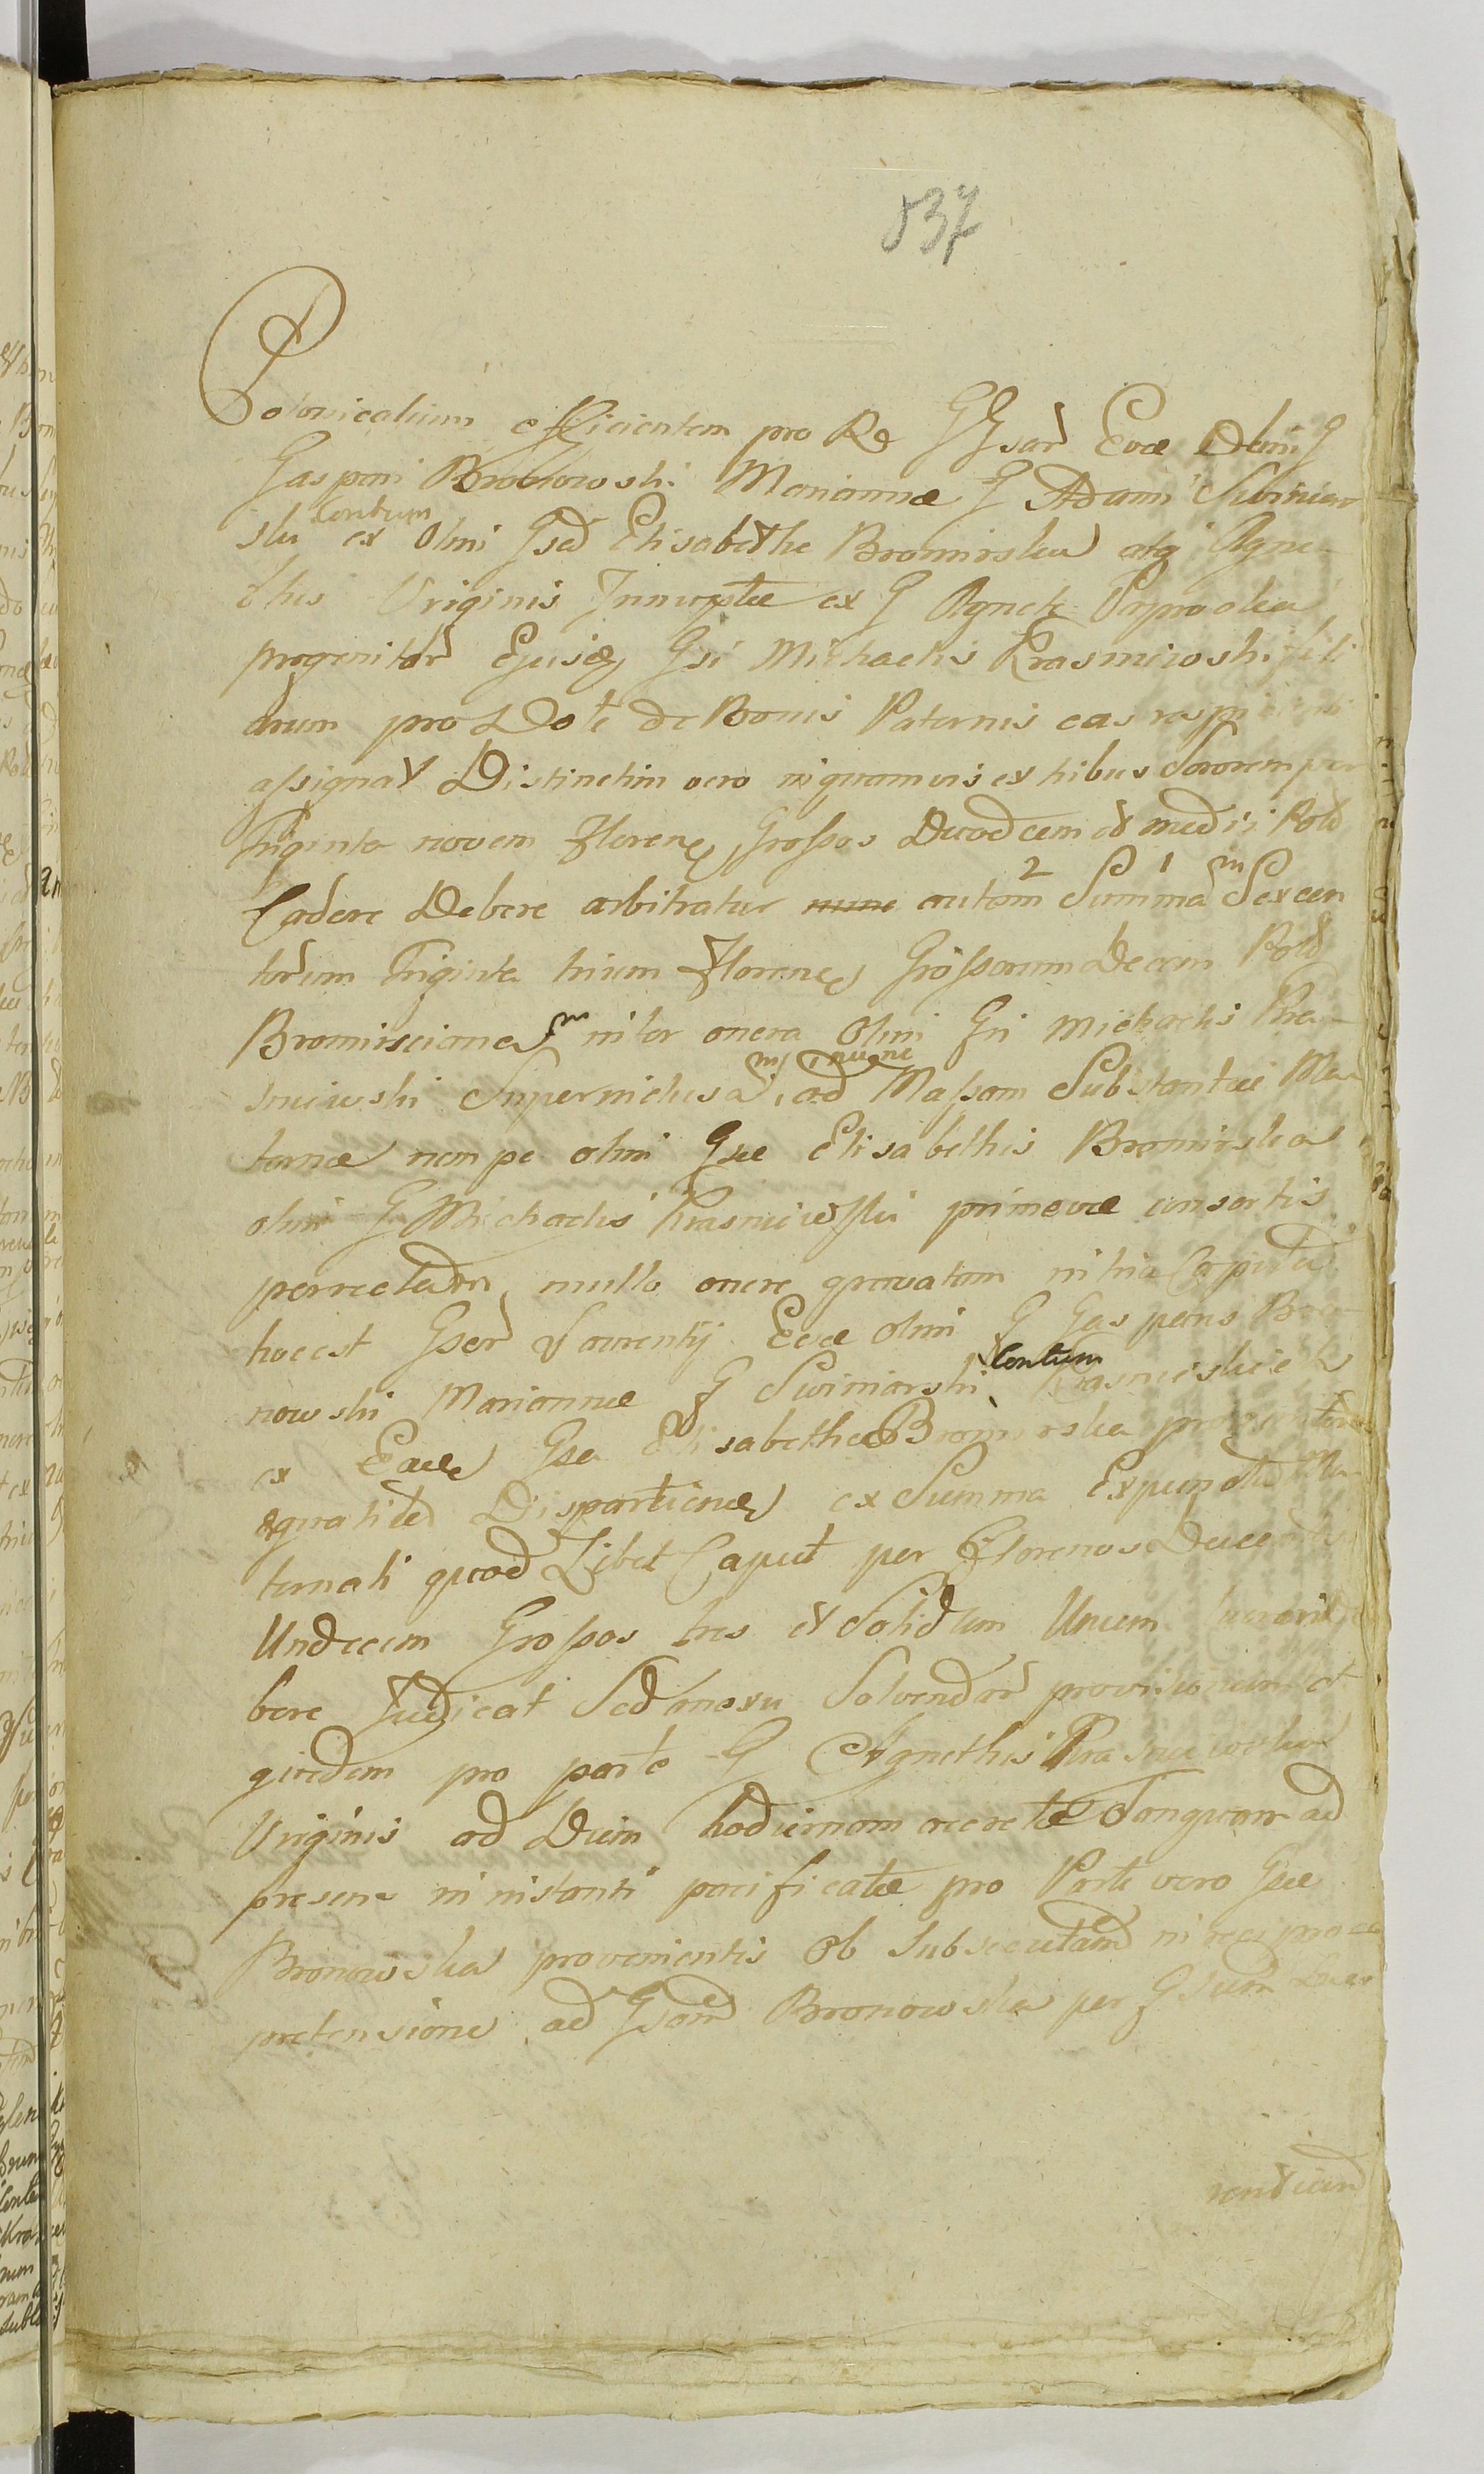 837
Polonicalium efficientem pro Re GGsar Evæ Olim G
Gaspari Bronowski Mariannæ G Adami Swiniar
ski Contum ex Olim Gsa Elisabethe Bromirska atq Agne-
this Virginis Innuptæ ex G Agneti
progenitar Ejusq Gsi Michaelis Krasniewski fili
arum pro Dote de Bonis Paternis eas
assignat Distinctim vero in quamvis ex tribus Sororem per
Triginta novem Floreno Grossos Duodecem et medii Pold
Cadere Debere arbitratur nunc autem 2 Summa 1 m Sexcen
torum Triginta trium Floreno Grossorum Decem Pold
Bromirsciana m inter onera Olim Gsi Michaelis Kra-
sniewski Superinclusa m, nunc ad Massam Substantiæ Ma
ternæ nempe olim Gsæ Elisabethis Bromirska
olim G Michaelis Krasniewski primeva consortis
perrectam, nullo onere gravatam in tria Capita
hoc est Gser Laurentij Evæ olim G Gasparis Bro-
nowski Mariannæ G Swiniarski Contum
ex Eade Gsa Elisabethæ Bromirska
æqualited Dispartiend ex Summa Expuncta Ma
ternali quod Libet Caput per Florenos Ducentos
Undecem Grossos tres et Solidum Unum
bere Judicat Sed onexu Solvendar provisionum et
quidem pro parte G Agnethis Krasniewska
Virginis ad Diem hodiernam Tanquam ad
presens in instanti pacificatæ pro Parte vero Gsæ
Bronowska provenientis Ob Subsecutam in reciproca
pretensione ad Gsam Bronowska per Gsum